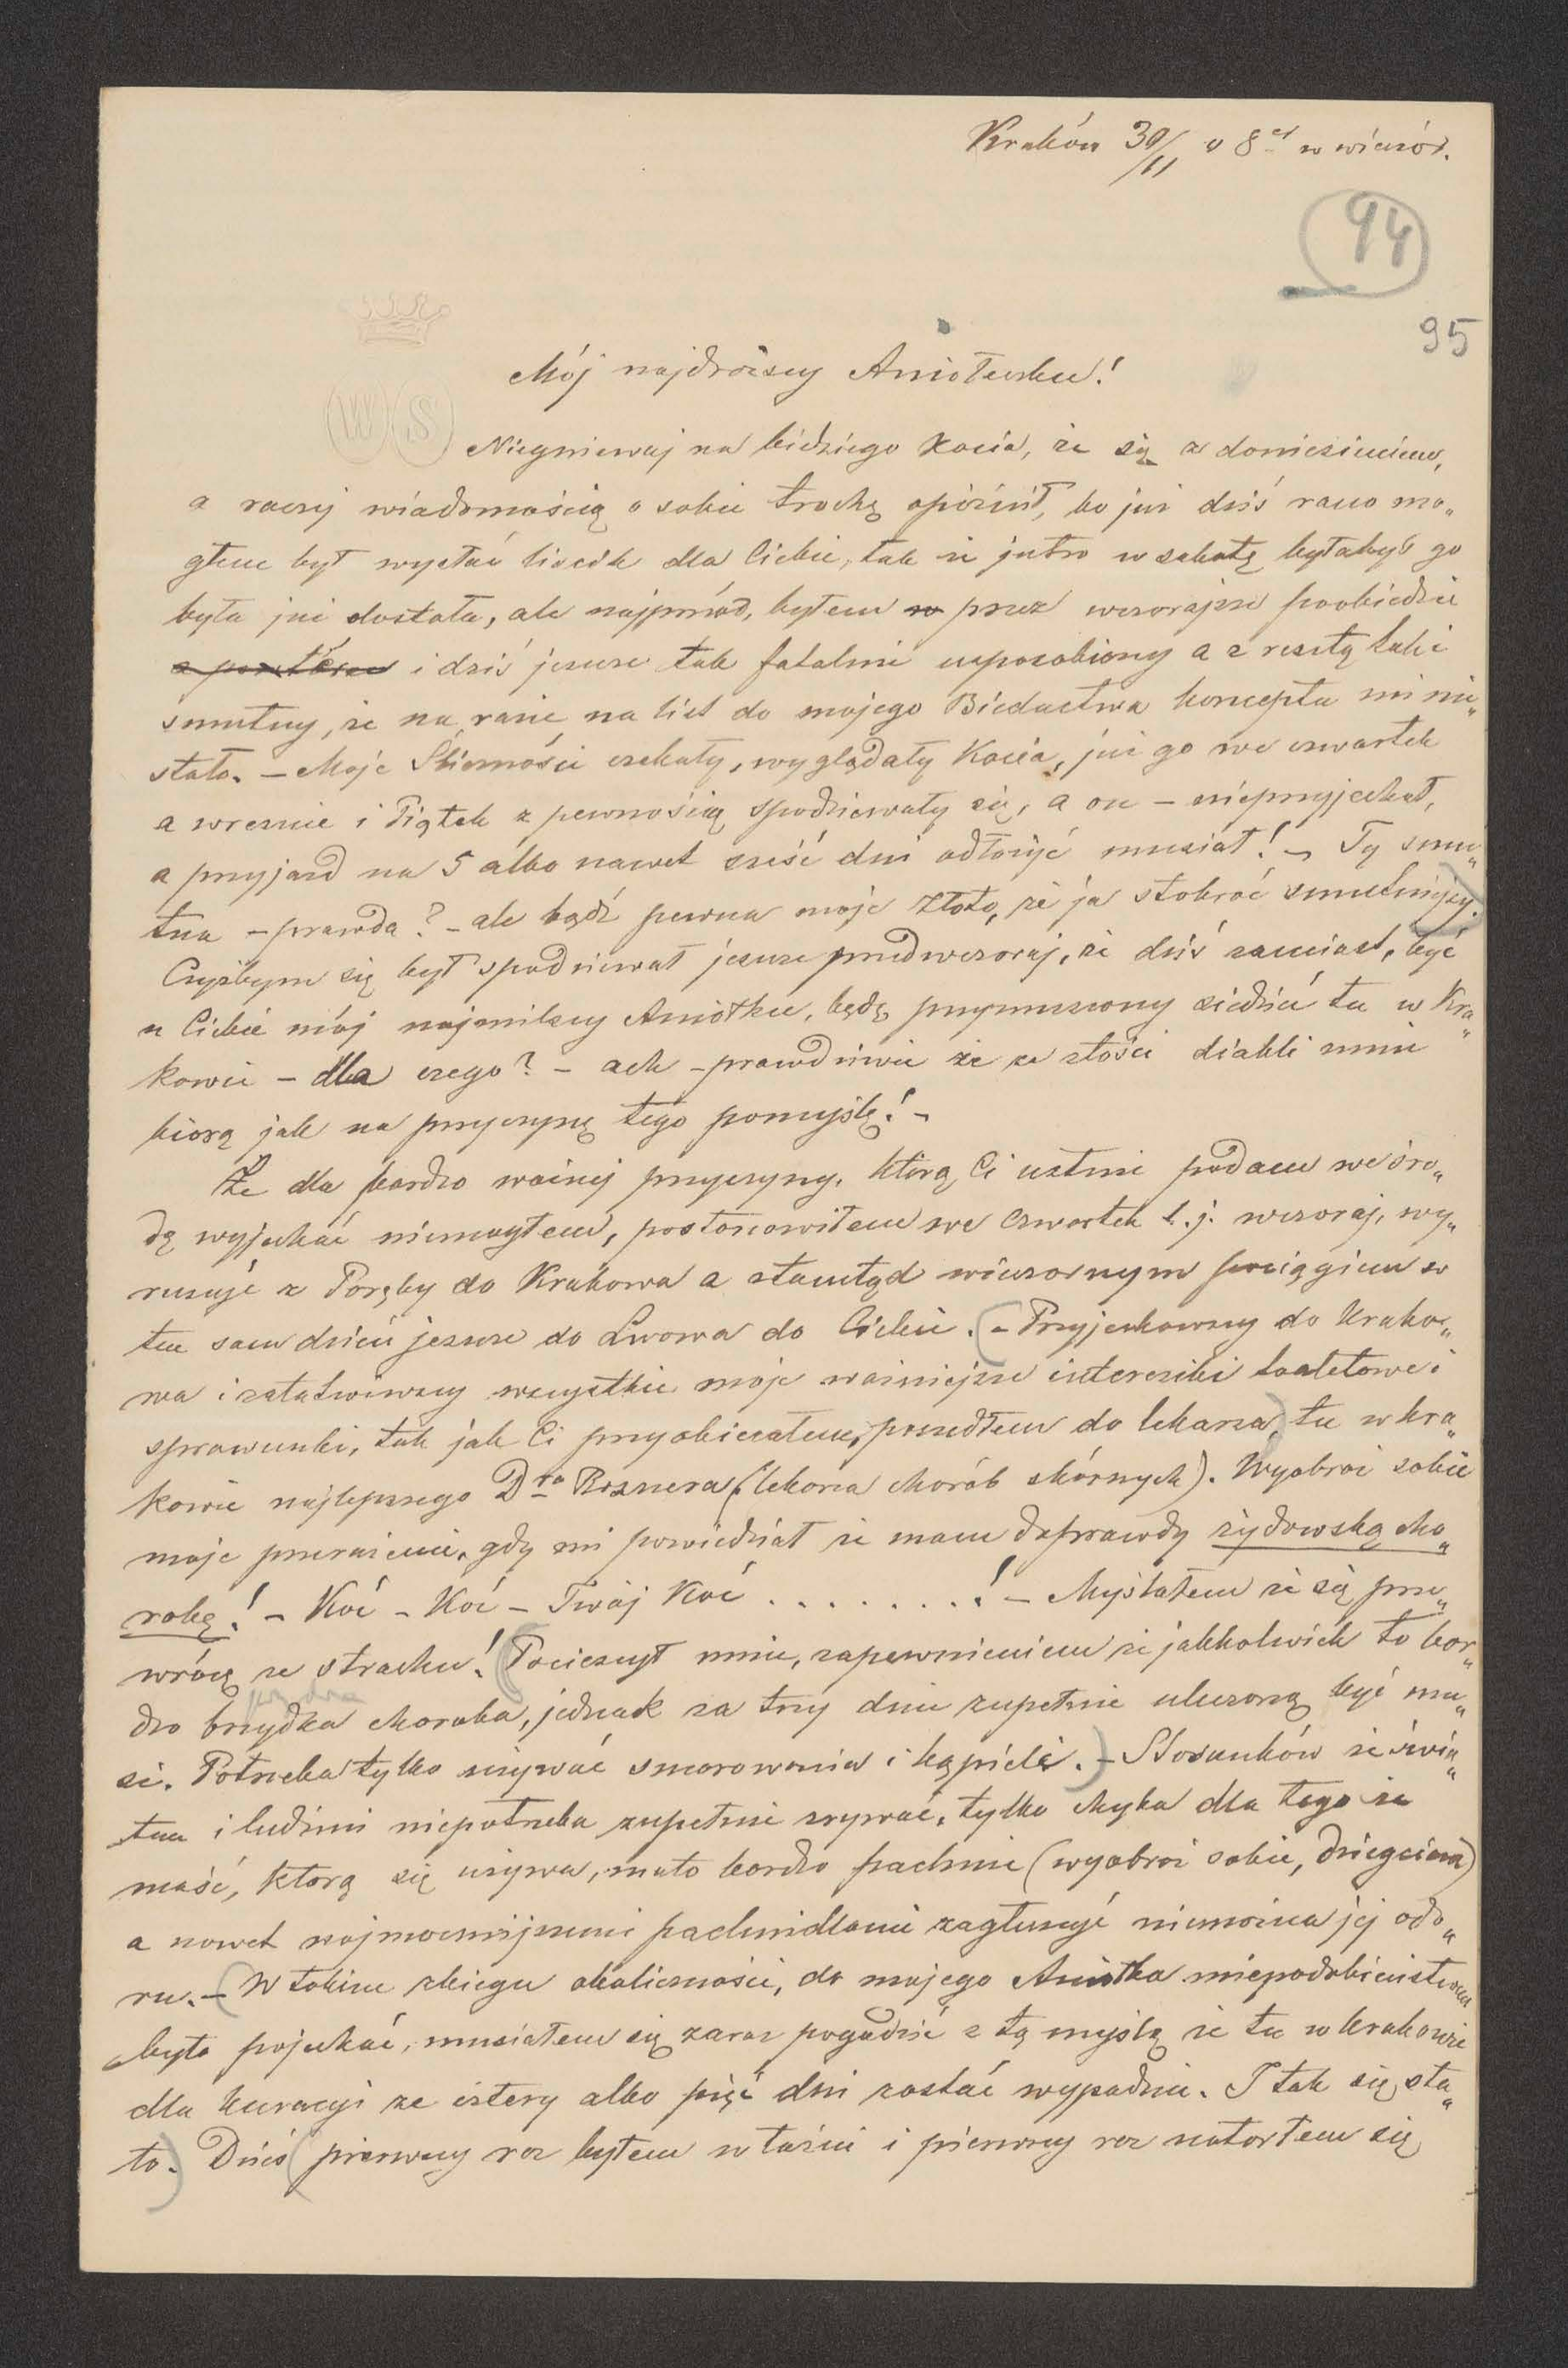 Kraków 30/11 o 8ej w wieczór.
94
95
Mój najdroższy Aniołeczku!
W S
Niegniewaj na biednego Kocia, że się z doniesieniem,
a raczej wiadomością o sobie trochę opóźnił, bo już dziś rano mo„
głem był wysłać liścik dla Ciebie, tak że jutro w sobotę byłabyś go
była już dostała, ale najprzód, byłem przez wczorajsze poobiedzie
i dziś jeszcze tak fatalnie usposobiony a z resztą taki
smutny, że na razie na list do mojego Biedactwa konceptu mi nie„
stało. – Moje Śliczności czekały, wyglądały Kocia, już go we czwartek
a wreszcie i Piątek z pewnością spodziewały się, a on – nieprzyjechał,
a przyjazd na 5 albo nawet sześć dni odłożyć musiał! – Ty smu„
tna – prawda? – ale bądź pewna moje Złoto, że ja stokroć smutniejszy.
Czyżbym się był spodziewał jeszcze przedwczoraj, że dziś zamiast, być
u Ciebie mój najmilszy Aniołku, będę przymuszony siedzieć tu w Kra„
kowie – dla czego? – ach – prawdziwie że ze złości diabli mnie
biorą jak na przyczynę tego pomyślę! –
Że dla bardzo ważnej przyczyny, którą Ci ustnie podam we śro„
dę wyjechać niemogłem, postanowiłem we Czwartek t.j. wczoraj, wy„
ruszyć z Poręby do Krakowa a stamtąd wieczornym pociągiem w
ten sam dzień jeszcze do Lwowa do Ciebie. (– Przyjechawszy do Krako„
wa i załatwiwszy wszystkie moje ważniejsze interesiki toaletowe i
sprawunki, tak jak Ci przyobiecałem, poszedłem do lekarza) tu w Kra„
kowie najlepszego Dra Rosnera (lekarza chorób skórnych). Wyobraź sobie
moje przerażenie, gdy mi powiedział że mam doprawdy żydowską cho„
robę! – Koć – Koć – Twój Koć . . . . . . . . ! – Myślałem że się prze„
wrócę ze strachu! (Pocieszył mnie, zapewnieniem że jakkolwiek to bar„
dzo brzydka choroba, jednak za trzy dnie zupełnie uleczoną być mu„
si. Potrzeba tylko używać smarowania i kąpieli.) – Stosunków ze świa„
tem i ludźmi niepotrzeba zupełnie zrywać, tylko chyba dla tego że
maść, którą się używa, mało bardzo pachnie (wyobraź sobie, dziegciem)
a nawet najmocniejszemi pachnidłami zagłuszyć niemożna jej odo„
ru. – (W takim zbiegu okoliczności, do mojego Aniołka niepodobieństwem
było pojechać, musiałem się zaraz pogodzić z tą myślą że tu w Krakowie
dla kuracyi ze cztery albo pięć dni zostać wypadnie. I tak się sta„
ło.) Dziś (pierwszy raz byłem w łaźni i pierwszy raz natarłem się